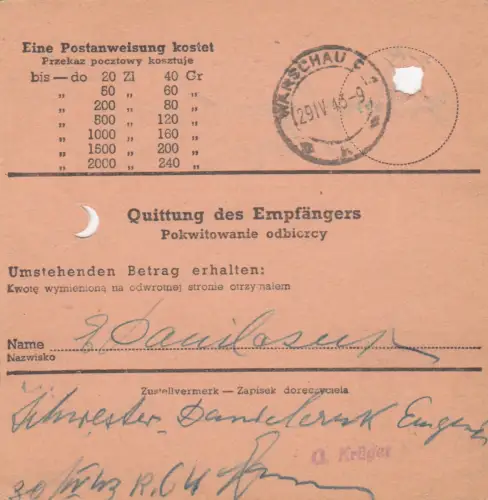 Eine Postanweisung kostet
Przekaz pocztowy kosztuje
bis — do 20 Zl 40 Gr
„ 50 „ 60 „
„ 200 „ 80 „
„ 500 „ 120 „
„ 1000 „ 160 „
„ 1500 „ 200 „
„ 2000 „ 240 „
WARSCHAU C 1
29 IV 43 - 9
Quittung des Empfängers
Pokwitowanie odbiorcy
Umstehenden Betrag erhalten:
Kwotę wymienioną na odwrotnej stronie otrzymałem
Name
Nazwisko
Zustellvermerk — Zapisek doręczyciela
Schwester
G. Krüger